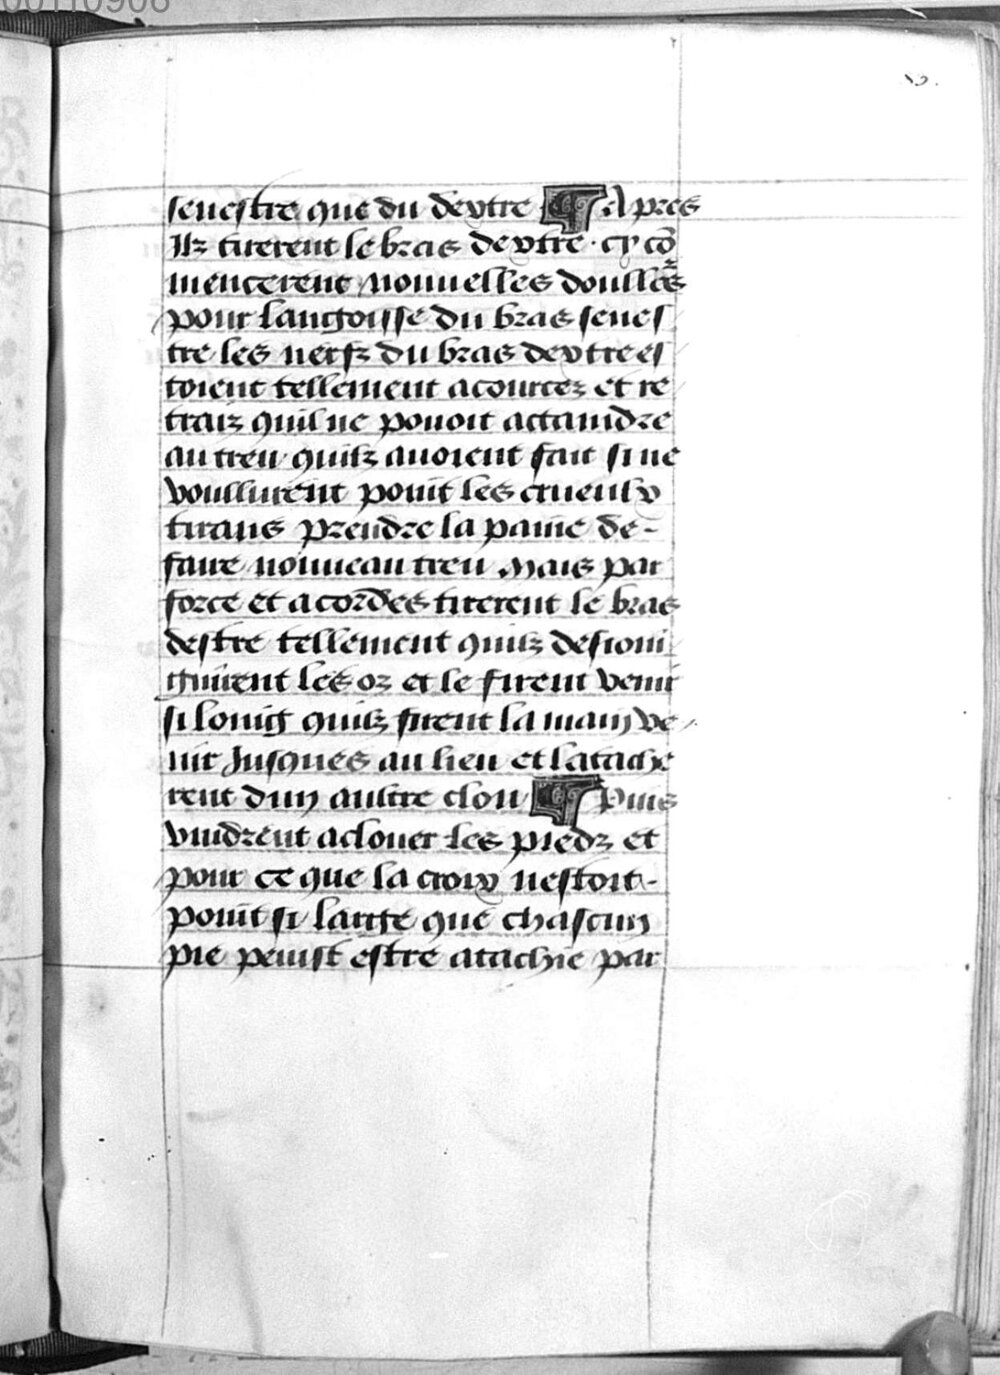 00110908
senestre que du dextre ¶ Apres
Ilz tirerent le bras dextre · cy cō
mencerent nouuelles doulle᷑s
pour langoisse du bras senes
tre les nerfz du bras dextre es
toient tellement acourcez et re
traiz quil ne pouoit actaindre
au treu quilz auoient fait si ne
voullurent point les crueulx
tirans prendre la paine de-
faire nouueau treu Mais par
force et a cordes tirerent le bras
destre tellement quilz desioin
gnirent les oz et le firent venir
si loing quilz firent la main ve
nir Jusques au lieu et latache
rent dun aultre clou ¶ Puis
vindrent aclouer les piedz et
pour ce que la croix nestoit-
point si large que chascun
pie peuist estre atachie par